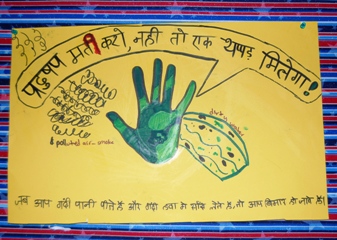 पदुषण मत करो, नही तो एक थपड़ मिलेगा!
dirty water
& polluted air - smoke
जब आप गंदी पानी पीते है और गंदी हवा मे साँस लेते है, तो आप बिमार हो जाते है।